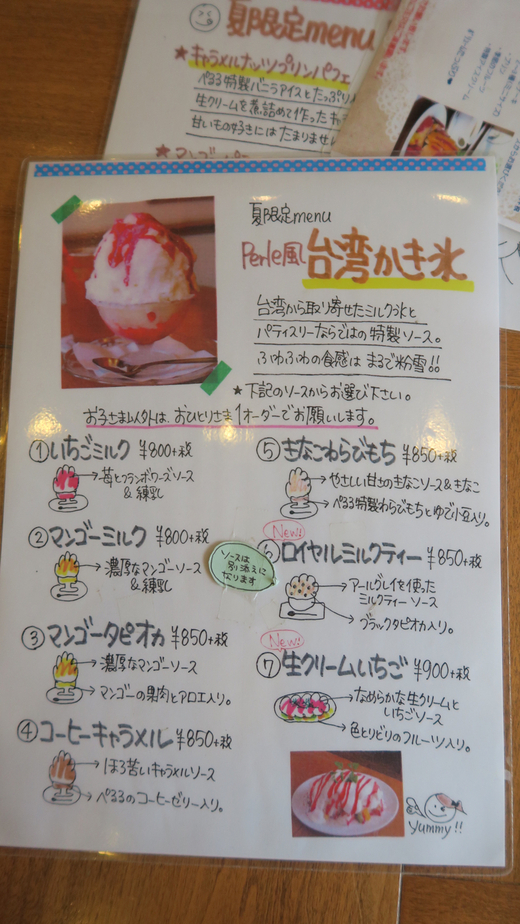 夏限定menu
★キャラメルナッツプリンパフェ
ぺるる特製バニラアイスとたっぷり
生クリームを煮詰めて作ったキャ
甘いもの好きにはたまりません
夏限定menu
Perle風 台湾かき氷
台湾から取り寄せたミルク氷と
パティスリーならではの特製ソース。
ふわふわの食感は まるで粉雪!!
★下記のソースからお選び下さい。
お子さま以外は、おひとりさま1オーダーでお願いします。
①いちごミルク ¥800+税
→苺とフランボワーズソース
&練乳
②マンゴーミルク ¥800+税
→濃厚なマンゴーソース
&練乳
③マンゴータピオカ ¥850+税
→濃厚なマンゴーソース
→マンゴーの果肉とアロエ入り。
④コーヒーキャラメル ¥850+税
→ほろ苦いキャラメルソース
→ぺるるのコーヒーゼリー入り。
ソースは
別添えに
なります
⑤きなこわらびもち ¥850+税
→やさしい甘さのきなこソース&きなこ
→ぺるる特製わらびもちとゆで小豆入り。
New!
⑥ロイヤルミルクティー ¥850+税
→アールグレイを使った
ミルクティーソース
→ブラックタピオカ入り。
New!
⑦生クリームいちご ¥900+税
→なめらかな生クリームと
いちごソース
→色とりどりのフルーツ入り。
Yummy!!